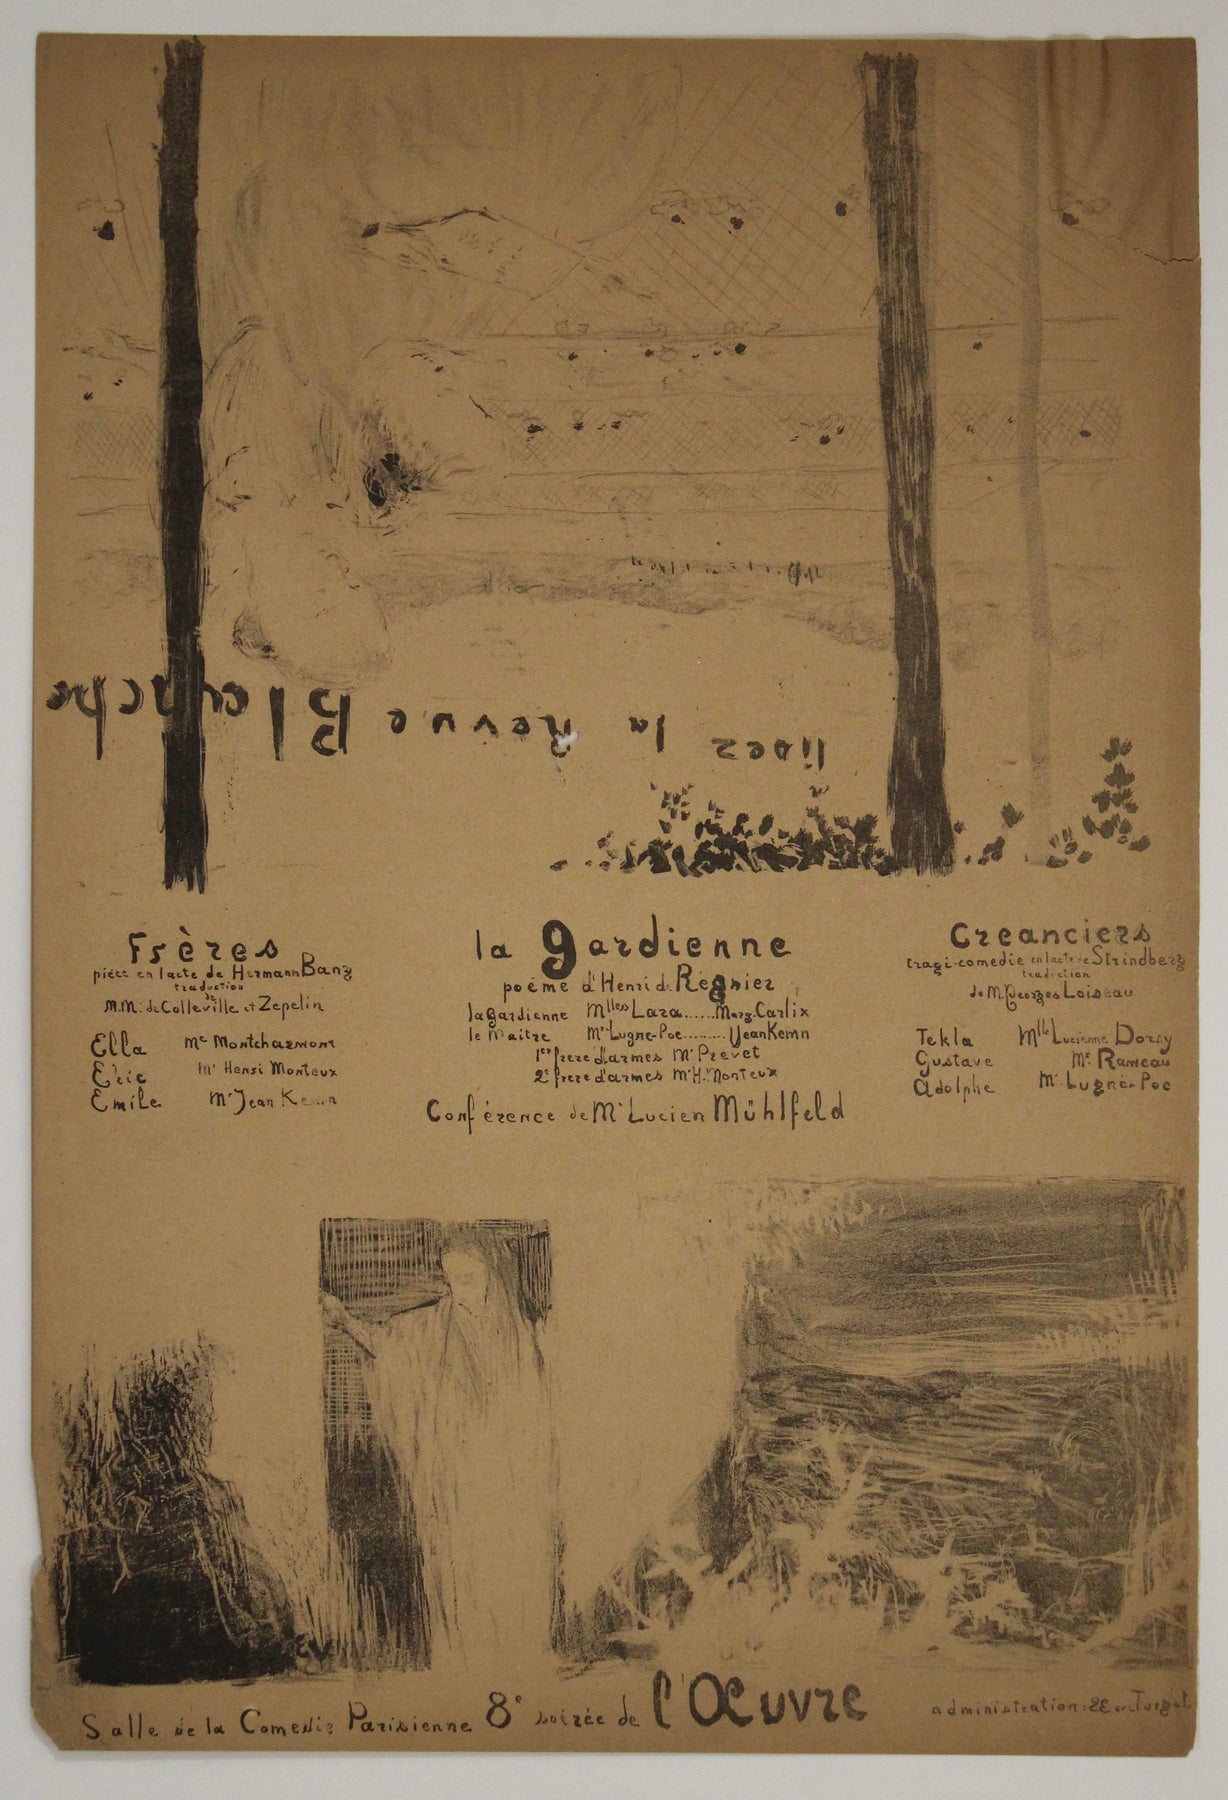 lisez la Revue Blanche
Frères
pièce en 1 acte de Hermann Bang
traduction
de
M.M. de Colleville et Zepelin
Ella Me Montcharmont
Eric Mr Henri Monteux
Emile Mr Jean Kemn
la gardienne
poéme d'Henri de Régnier
la gardienne Mlles Lara......Marg. Carlix
le Maitre Mrs Lugne-Poe.........Jean Kemn
1er frere d'armes Mr Prevet
2e frere d'armes Mr H. Monteux
Conférence de Mr Lucien Mühlfeld
Creanciers
tragi-comedie en 1 acte de Strindberg
traduction
de M. Georges Loiseau
Tekla Mlle Lucienne Dorsy
Gustave Mr Rameau
Adolphe Mr Lugné-Poe
Salle de la Comedie Parisienne 8e soirée de l'Œuvre
administration: 22 rue Turgot